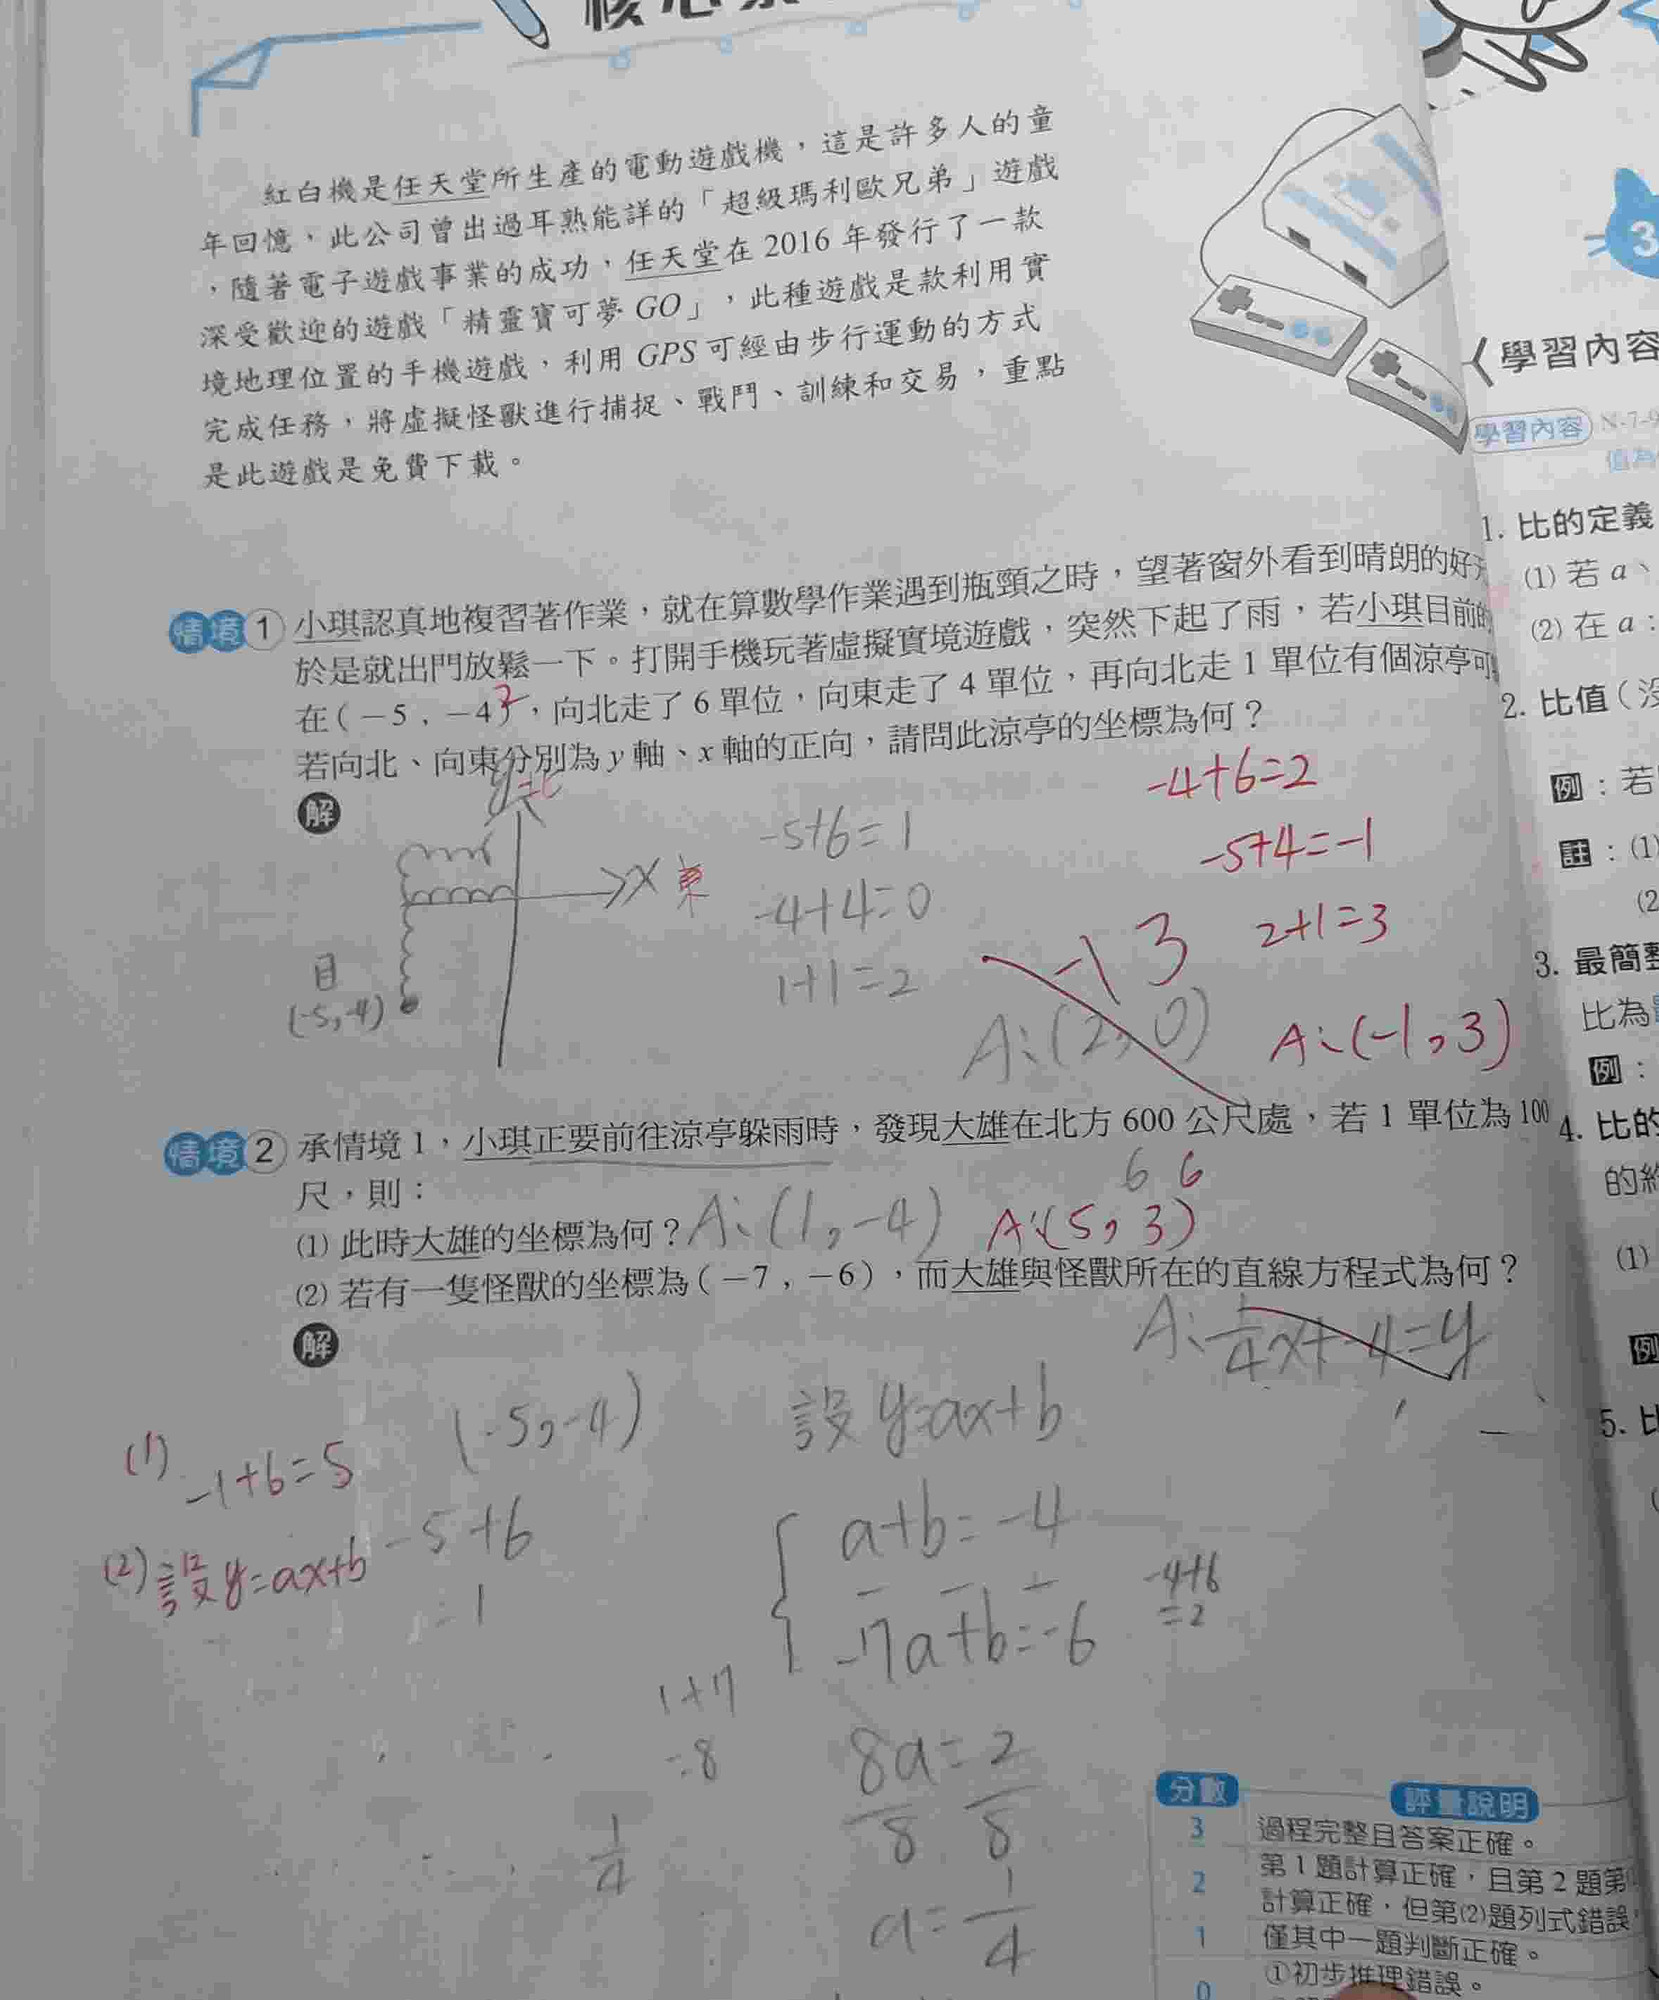 紅白機是任天堂所生產的電動遊戲機，這是許多人的童
年回憶，此公司曾出過耳熟能詳的「超級瑪利歐兄弟」遊戲
，隨著電子遊戲事業的成功，任天堂在 2016 年發行了一款
深受歡迎的遊戲「精靈寶可夢 GO」，此種遊戲是款利用實
境地理位置的手機遊戲，利用 GPS 可經由步行運動的方式
完成任務，將虛擬怪獸進行捕捉、戰鬥、訓練和交易，重點
是此遊戲是免費下載。
情境 1 小琪認真地複習著作業，就在算數學作業遇到瓶頸之時，望著窗外看到晴朗的好
於是就出門放鬆一下。打開手機玩著虛擬實境遊戲，突然下起了雨，若小琪目前的
在(－5 , －4)，向北走了 6 單位，向東走了 4 單位，再向北走 1 單位有個涼亭可
若向北、向東分別為 y 軸、x 軸的正向，請問此涼亭的坐標為何？
解
x 東
目
(-5,-4)
-5+6=1
-4+4=0
1+1=2
A:(2,0)
-4+6=2
-5+4=-1
2+1=3
-1 3
A:(-1,3)
情境 2 承情境 1，小琪正要前往涼亭躲雨時，發現大雄在北方 600 公尺處，若 1 單位為 100
尺，則：
6 6
(1) 此時大雄的坐標為何？A:(1,-4) A:(5,3)
(2) 若有一隻怪獸的坐標為(－7 , －6)，而大雄與怪獸所在的直線方程式為何？
A:1/4x+-4=y
解
(1) -1+6=5
(2) 設y=ax+b
(-5,-4)
-5+6
=1
設 y=ax+b
a+b=-4
-7a+b=-6
-4+6
=2
1+7
=8
8a=2
8 8
1/4
a=1/4
分數 評量說明
3 過程完整且答案正確。
2 第 1 題計算正確，且第 2 題第
計算正確，但第(2)題列式錯誤
1 僅其中一題判斷正確。
0 ①初步推理錯誤。
3
學習內容
學習內容 N-7-9
1. 比的定義
(1) 若 a、
(2) 在 a：
2. 比值（沒
例：若
註：(1)
(2
3. 最簡整
比為
例：
4. 比的
的終
(1)
例
5. 比